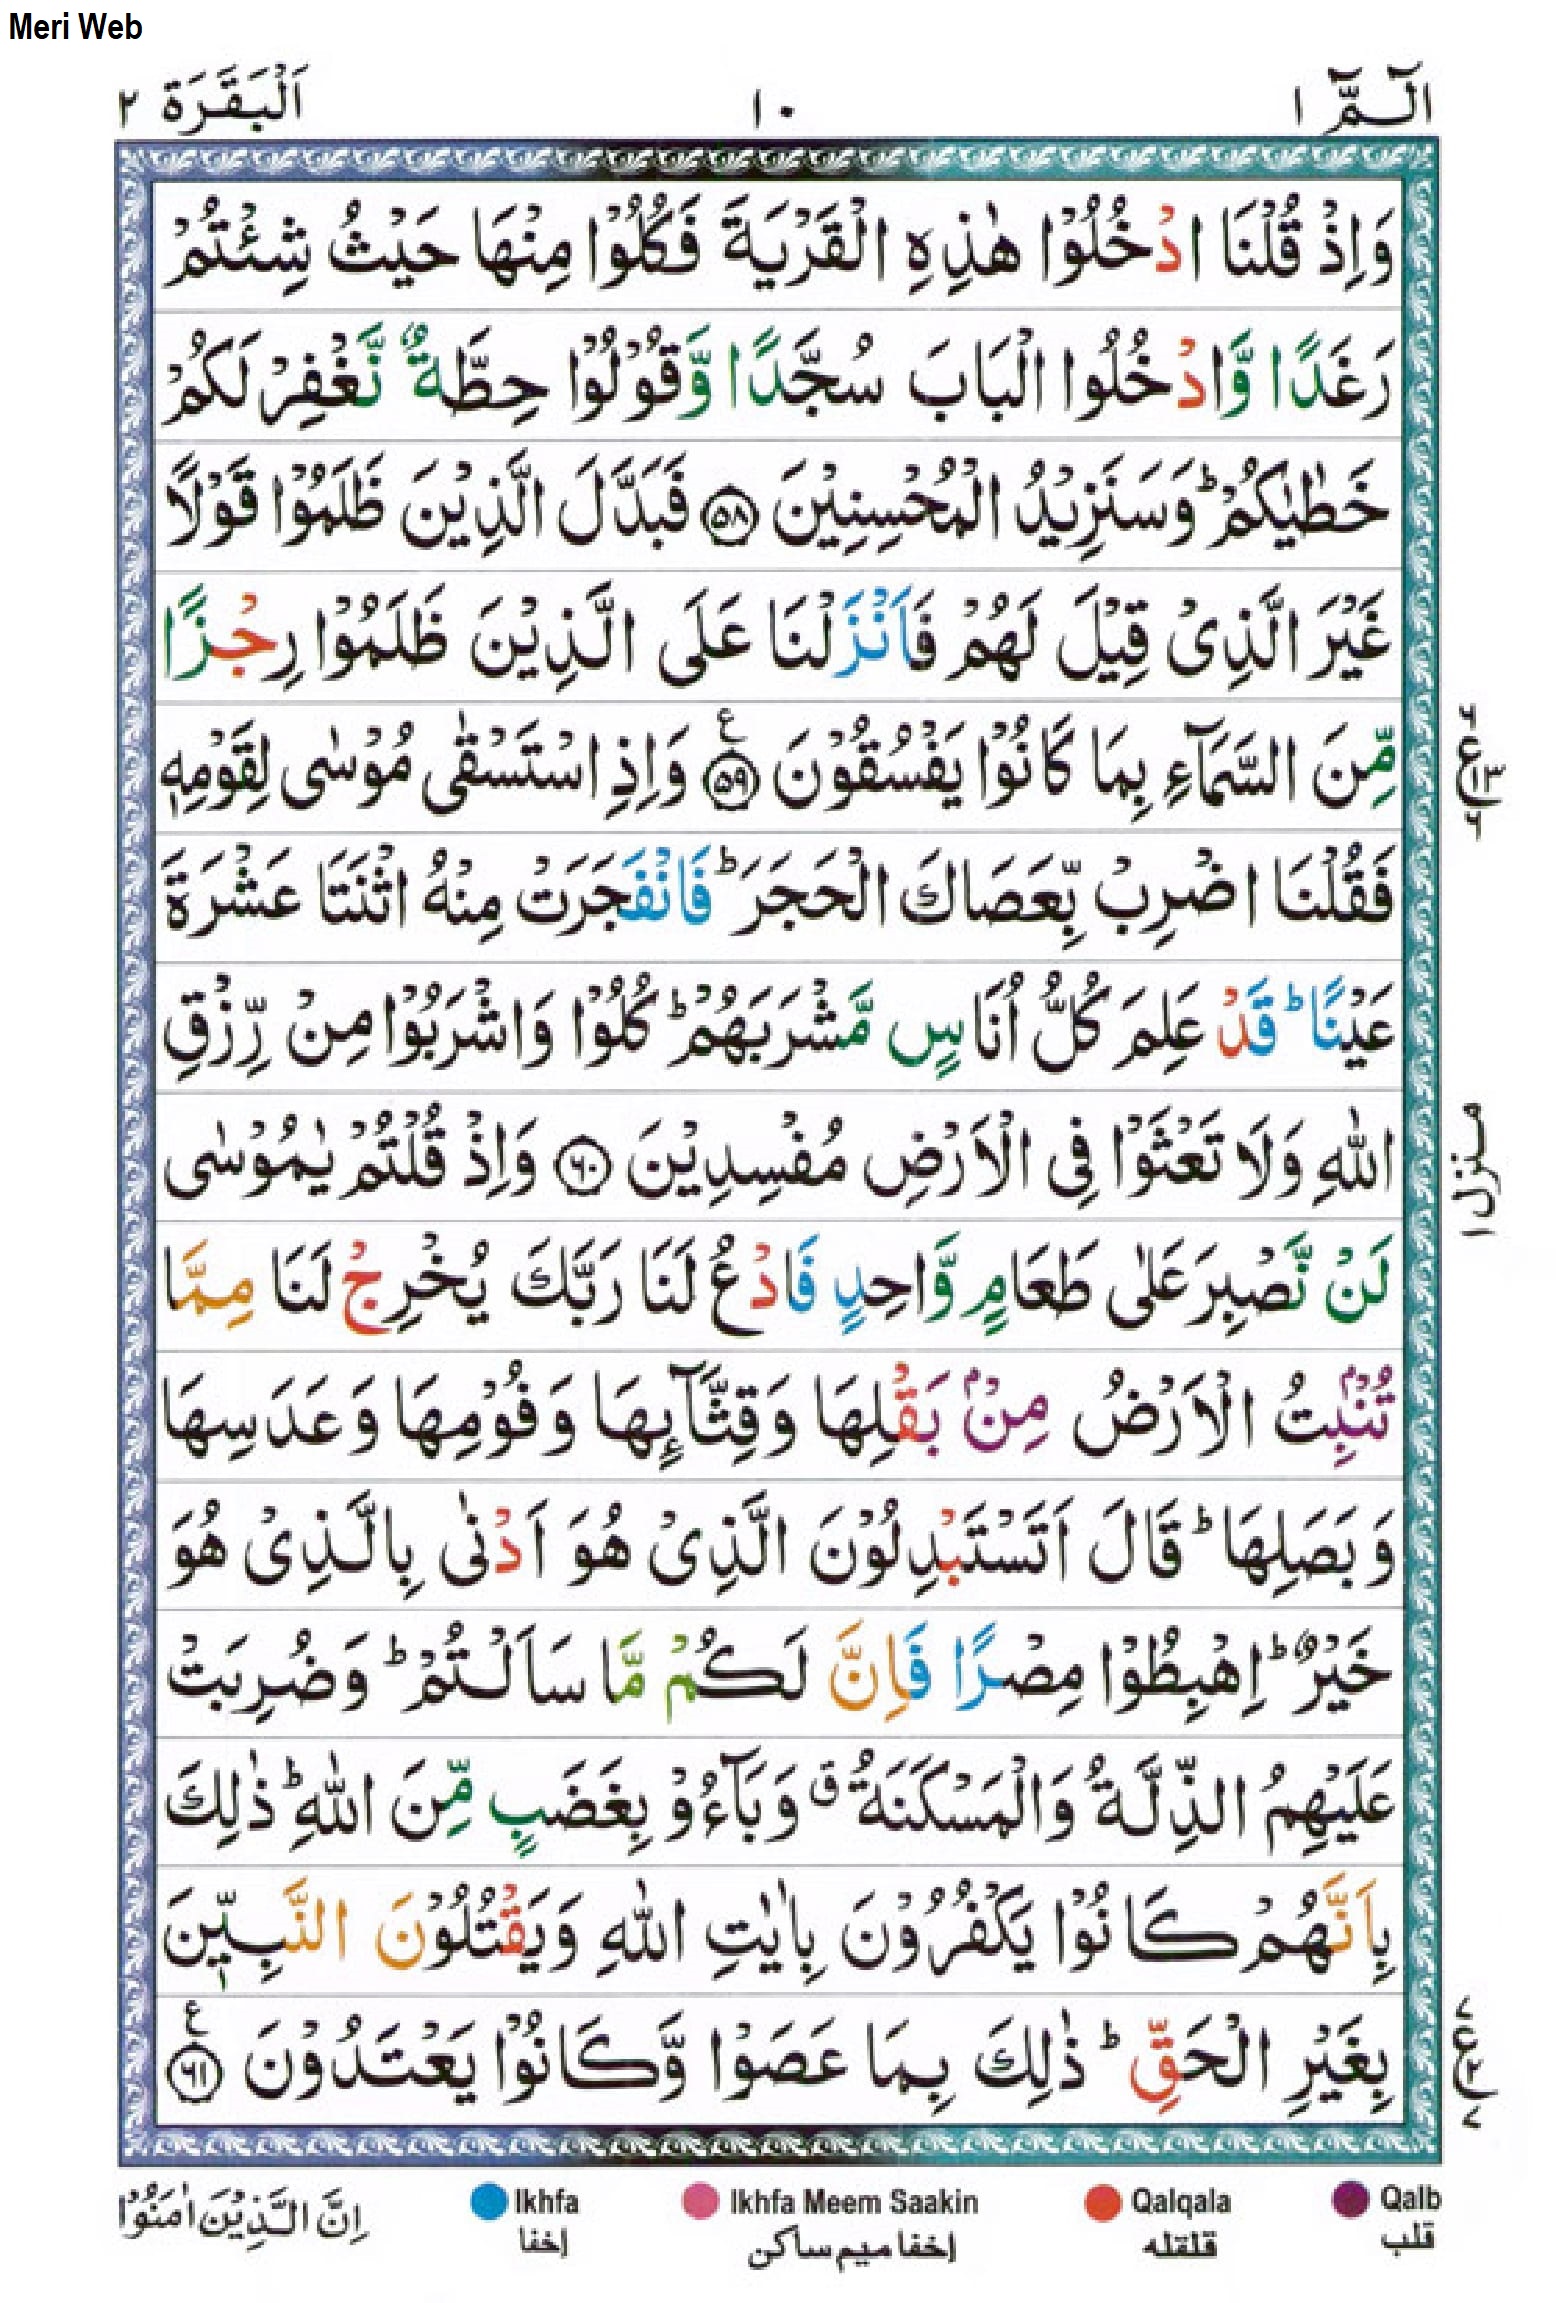 Meri Web
الٓـمّٓ ١   ١٠   اَلْبَقَرَة ٢
وَاِذْ قُلْنَا ادْخُلُوْا هٰذِهِ الْقَرْيَةَ فَكُلُوْا مِنْهَا حَيْثُ شِئْتُمْ
رَغَدًا وَّادْخُلُوا الْبَابَ سُجَّدًا وَّقُوْلُوْا حِطَّةٌ نَّغْفِرْ لَكُمْ
خَطٰيٰكُمْ ؕ وَسَنَزِيْدُ الْمُحْسِنِيْنَ ﴿۵۸﴾ فَبَدَّلَ الَّذِيْنَ ظَلَمُوْا قَوْلًا
غَيْرَ الَّذِىْ قِيْلَ لَهُمْ فَاَنْزَلْنَا عَلَى الَّذِيْنَ ظَلَمُوْا رِجْزًا
مِّنَ السَّمَآءِ بِمَا كَانُوْا يَفْسُقُوْنَ ﴿۵۹﴾ ع وَاِذِ اسْتَسْقٰى مُوْسٰى لِقَوْمِهٖ
فَقُلْنَا اضْرِبْ بِّعَصَاكَ الْحَجَرَ ؕ فَانْفَجَرَتْ مِنْهُ اثْنَتَا عَشْرَةَ
عَيْنًا ؕ قَدْ عَلِمَ كُلُّ اُنَاسٍ مَّشْرَبَهُمْ ؕ كُلُوْا وَاشْرَبُوْا مِنْ رِّزْقِ
اللّٰهِ وَلَا تَعْثَوْا فِى الْاَرْضِ مُفْسِدِيْنَ ﴿۶۰﴾ وَاِذْ قُلْتُمْ يٰمُوْسٰى
منزل ١
لَنْ نَّصْبِرَ عَلٰى طَعَامٍ وَّاحِدٍ فَادْعُ لَنَا رَبَّكَ يُخْرِجْ لَنَا مِمَّا
تُنْۢبِتُ الْاَرْضُ مِنْۢ بَقْلِهَا وَقِثَّآئِهَا وَفُوْمِهَا وَعَدَسِهَا
وَبَصَلِهَا ؕ قَالَ اَتَسْتَبْدِلُوْنَ الَّذِىْ هُوَ اَدْنٰى بِالَّذِىْ هُوَ
خَيْرٌ ؕ اِهْبِطُوْا مِصْرًا فَاِنَّ لَكُمْ مَّا سَاَلْتُمْ ؕ وَضُرِبَتْ
عَلَيْهِمُ الذِّلَّةُ وَالْمَسْكَنَةُ ق وَبَآءُوْ بِغَضَبٍ مِّنَ اللّٰهِ ؕ ذٰلِكَ
بِاَنَّهُمْ كَانُوْا يَكْفُرُوْنَ بِاٰيٰتِ اللّٰهِ وَيَقْتُلُوْنَ النَّبِيّٖنَ
بِغَيْرِ الْحَقِّ ؕ ذٰلِكَ بِمَا عَصَوْا وَّكَانُوْا يَعْتَدُوْنَ ﴿۶۱﴾ ع
اِنَّ الَّذِيْنَ اٰمَنُوْا   Ikhfa   Ikhfa Meem Saakin   Qalqala   Qalb
اخفا   اخفا میم ساکن   قلقله   قلب